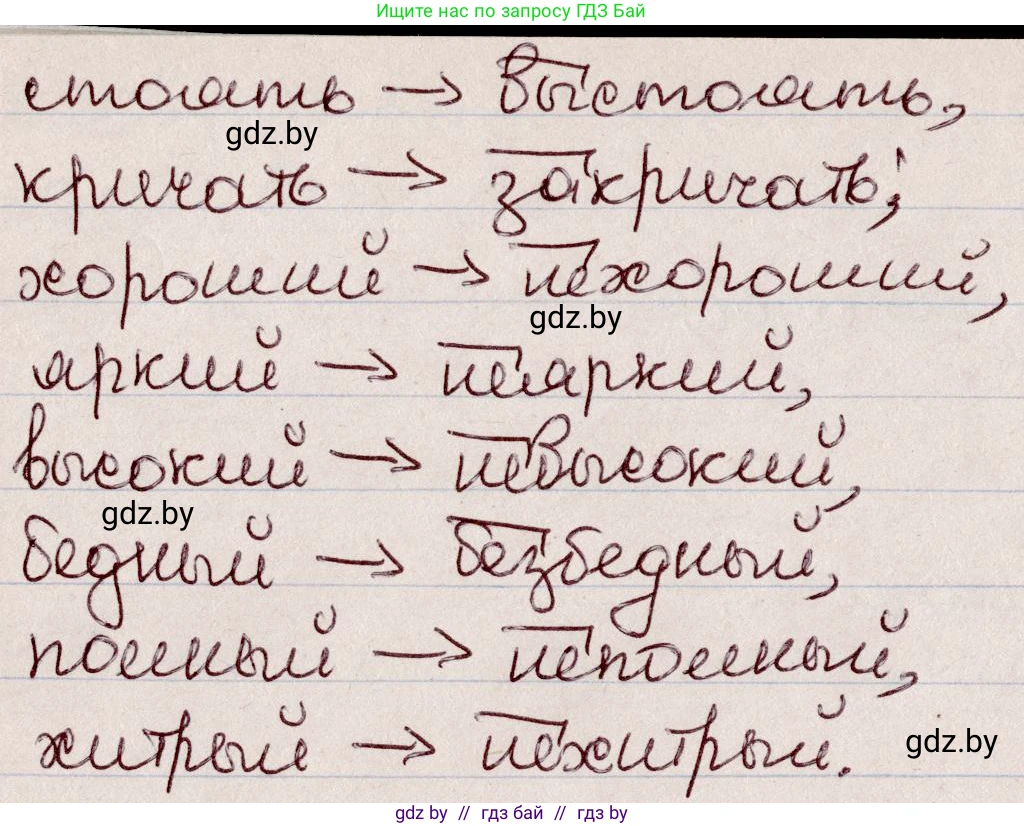 Ищите нас по запросу ГДЗ Бай
стоять → выстоять,
gdz.by
кричать → закричать;
хороший → нехороший,
gdz.by
яркий → неяркий,
высокий → невысокий,
gdz.by
бедный → безбедный,
полный → неполный,
хитрый → нехитрый.
gdz.by
gdz by // гдз бай // гдз by